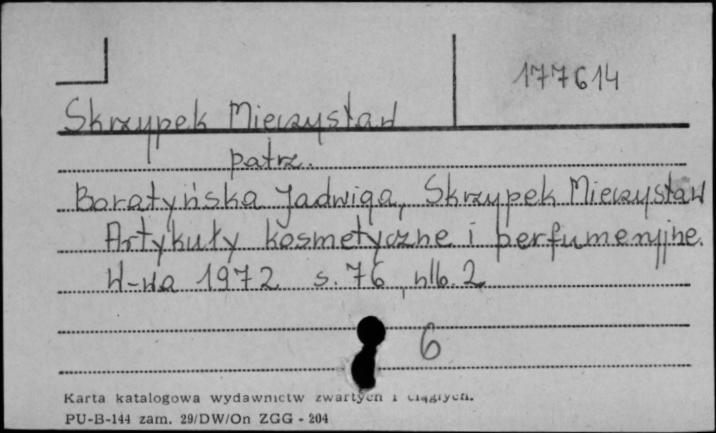 177614
Skrzypek Mieczysław
patrz.
Baratyńska Jadwiga, Skrzypek Mieczysław
Artykuły kosmetyczne i perfumeryjne.
W-wa 1972 s. 76, nlb. 2
6
Karta katalogowa wydawnictw zwartych i ciągłych.
PU-B-144 zam. 29/DW/On ZGG - 204